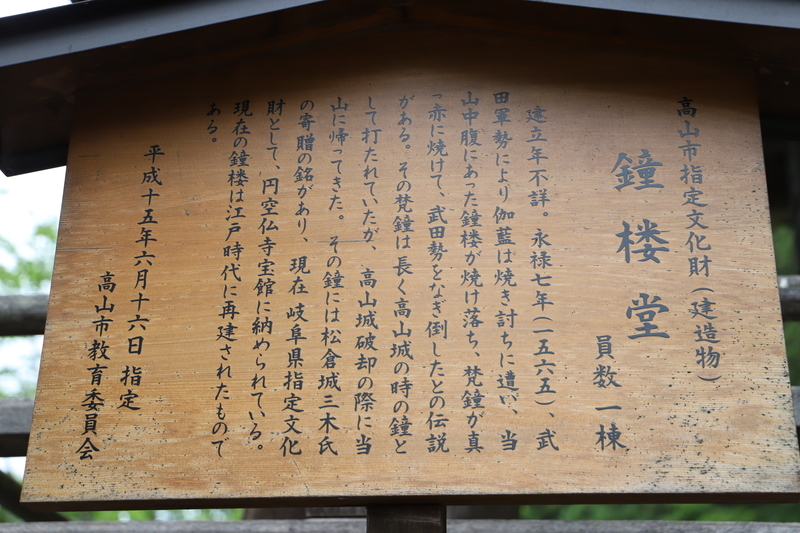 高山市指定文化財（建造物）
鐘楼堂
員数一棟
建立年不詳。永禄七年（一五六五）、武
田軍勢により伽藍は焼き討ちに遭い、当
山中腹にあった鐘楼が焼け落ち、梵鐘が真
っ赤に焼けて、武田勢をなぎ倒したとの伝説
がある。その梵鐘は長く高山城の時の鐘と
して打たれていたが、高山城破却の際に当
山に帰ってきた。その鐘には松倉城三木氏
の寄贈の銘があり、現在岐阜県指定文化
財として、円空仏寺宝館に納められている。
現在の鐘楼は江戸時代に再建されたもので
ある。
平成十五年六月十六日 指定
高山市教育委員会